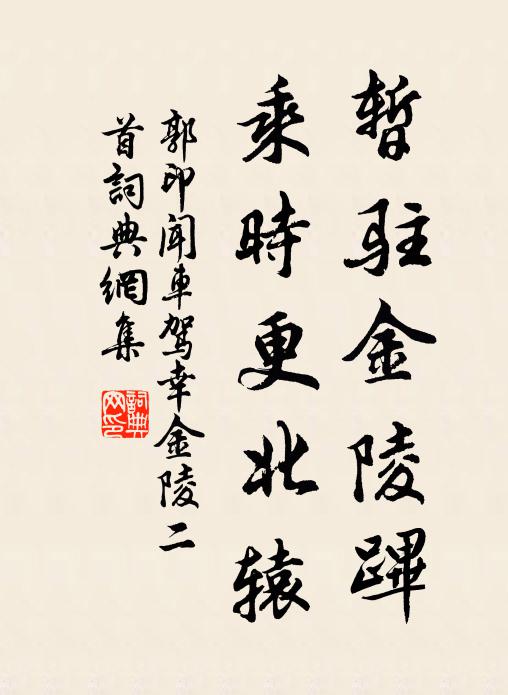 暫駐金陵蹕
乘時更北辕
郭印聞車駕幸金陵二
首詞典網集
詞典
网印